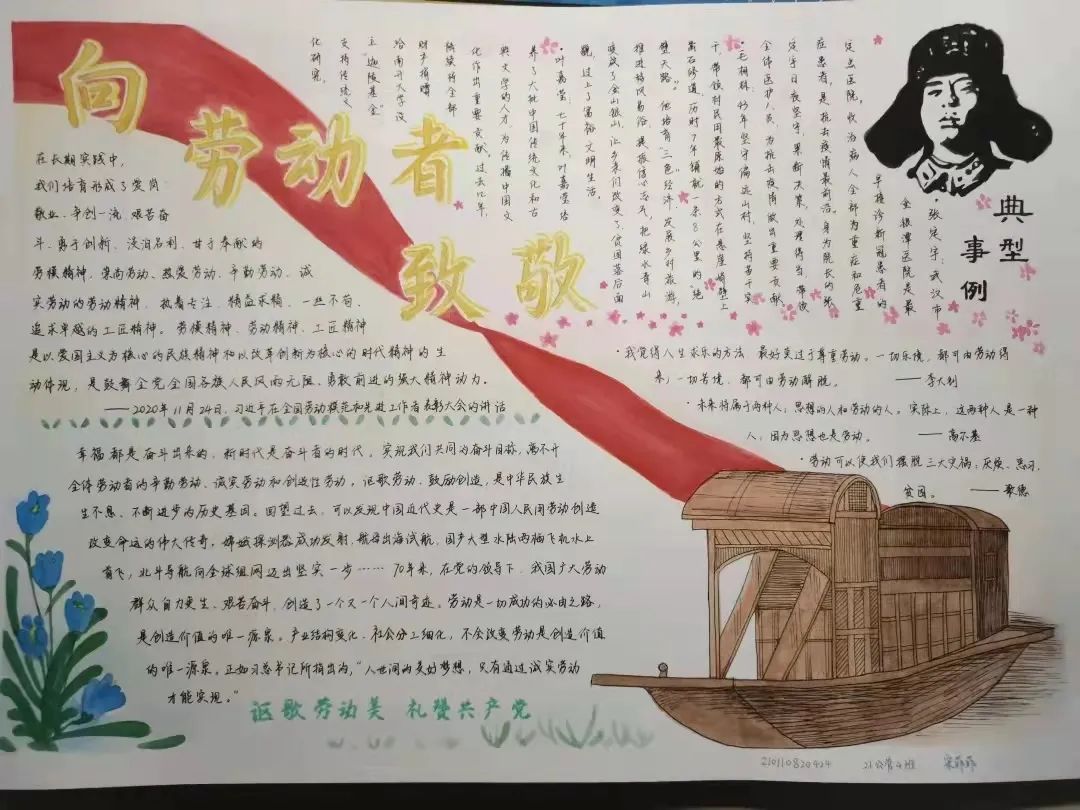 向
劳动者
致敬
在长期实践中,
我们培育形成了爱岗
敬业、争创一流、艰苦奋
斗、勇于创新、淡泊名利、甘于奉献的
劳模精神,崇尚劳动、热爱劳动、辛勤劳动、诚
实劳动的劳动精神,执着专注、精益求精、一丝不苟、
追求卓越的工匠精神。劳模精神、劳动精神、工匠精神
是以爱国主义为核心的民族精神和以改革创新为核心的时代精神的生
动体现,是鼓舞全党全国各族人民风雨无阻、勇敢前进的强大精神动力。
——2020年11月24日,习近平在全国劳动模范和先进工作者表彰大会的讲话
典型
事例
·张定宇:武汉市
金银潭医院是最
早接诊新冠患者的
定点医院,收治病人全部为重症和危重
症患者,是抗击疫情最前沿。身为院长的张
定宇日夜坚守,果断决策,处理得当,带领
全体医护人员,为抗击疫情做出重要贡献
·毛相林:43年坚守偏远山村,坚持苦干实
干,带领村民用最原始的方式在悬崖峭壁上
凿石修道,历时7年铺就一条8公里的"绝
壁天路"。他培育"三色"经济,发展乡村旅游,
推进移风易俗,提振信心志气,把绿水青山
变成了金山银山,让乡亲们改变了贫困落后面
貌,过上了富裕文明生活。
·叶嘉莹:七十年来,叶嘉莹培
养了大批中国传统文化和古
典文学的人才,为传播中国文
化作出重要贡献,过去几年,
陆续将全部
财产捐赠
给南开大学设
立"迦陵基金"
支持传统文
化研究。
·我觉得人生求乐的方法,最好莫过于尊重劳动。一切乐境,都可由劳动得
来,一切苦境,都可由劳动解脱。 ——李大钊
·未来将属于两种人:思想的人和劳动的人。实际上,这两种人是一种
人,因为思想也是劳动。 ——高尔基
·劳动可以使我们摆脱三大灾祸:厌烦、恶习、
贫困。 ——歌德
幸福都是奋斗出来的,新时代是奋斗者的时代。实现我们共同的奋斗目标,离不开
全体劳动者的辛勤劳动、诚实劳动和创造性劳动。讴歌劳动、鼓励创造,是中华民族生
生不息、不断进步的历史基因。回望过去,可以发现中国近代史是一部中国人民用劳动创造
改变命运的伟大传奇。嫦娥探测器成功发射,航母出海试航,国产大型水陆两栖飞机水上
首飞,北斗导航向全球组网迈出坚实一步……70年来,在党的领导下,我国广大劳动
群众自力更生、艰苦奋斗,创造了一个又一个人间奇迹。劳动是一切成功的必由之路,
是创造价值的唯一源泉。产业结构变化、社会分工细化,不会改变劳动是创造价值
的唯一源泉。正如习总书记所指出的,"人世间的美好梦想,只有通过诚实劳动
才能实现。"
讴歌劳动美 礼赞共产党
210110820424 21公管4班